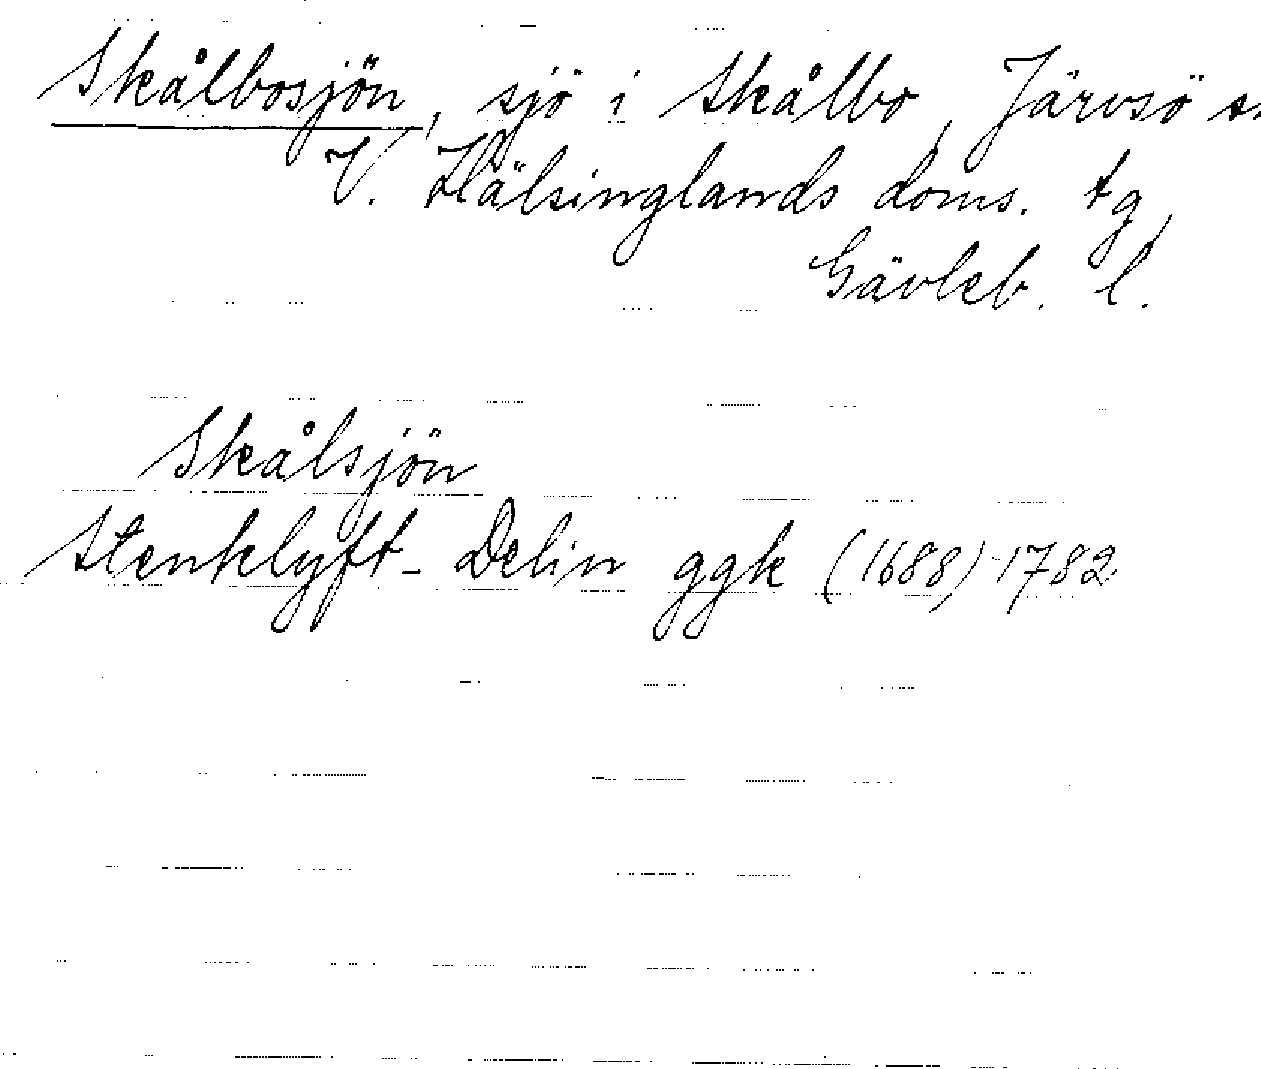 Skålbosjön, sjö i Skålbo, Järvsö s
V. Hälsinglands doms. tg,
Gävleb. l.
Skålsjön
Stenklyft-Delin ggk (1688) 1782